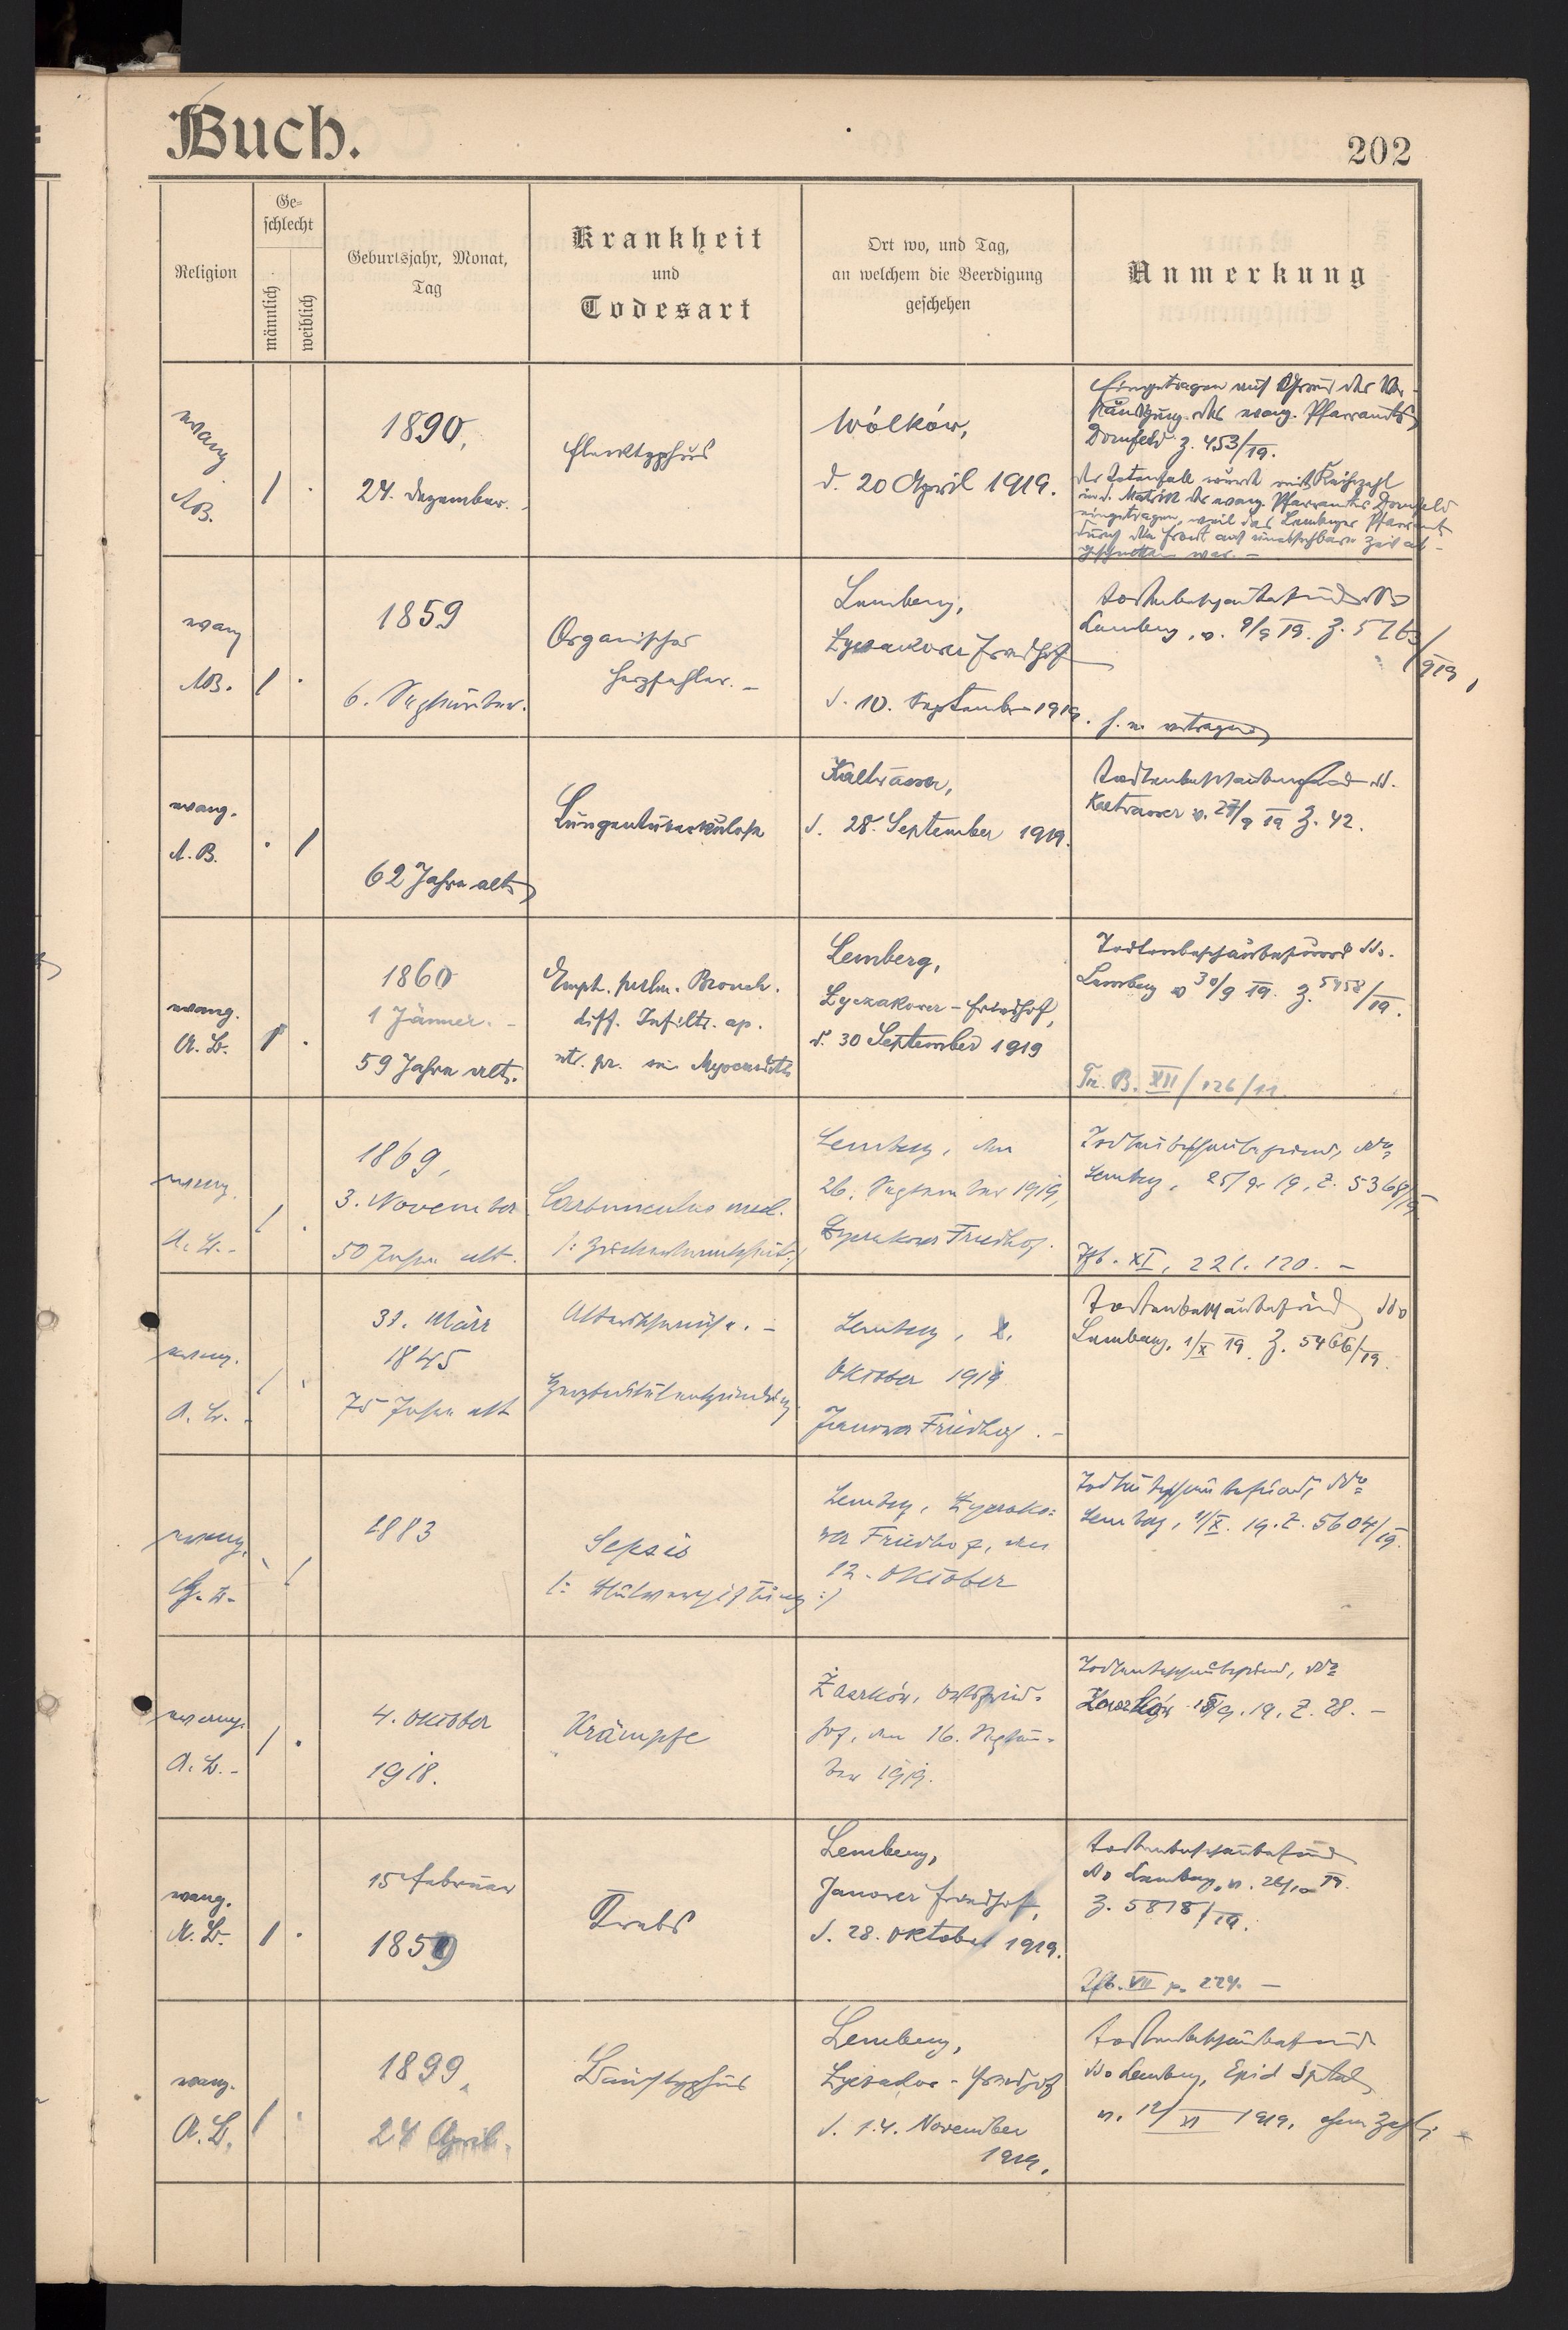 Buch.
202
Religion
Ge-
schlecht
männlich
weiblich
Geburtsjahr, Monat,
Tag
Krankheit
und
Todesart
Ort wo, und Tag,
an welchem die Beerdigung
geschehen
Anmerkung
evang
AB.
1 .
1890,
24. Dezember.
Flecktyphus
Wólków,
d. 20 April 1919.
Eingetragen auf Grund der Ver-
ständigung des evang. Pfarramts
Dornfeld Z. 453/19.
Der Totenfall wurde mit Reihzahl
in d. Matrik des evang. Pfarramtes Dornfeld
eingetragen, weil das Lemberger Pfarramt
durch die Front auf unabsehbare Zeit ab-
geschnitten war. -
evang
AB.
1 .
1859
6. September.
Organischer
Herzfehler. -
Lemberg,
Lyczakower Friedhof
d. 10. September 1919.
Todtenbeschaubefund ddo
Lemberg, v. 9/9 19. Z. 5263/919,
evang.
A. B.
. 1
62 Jahre alt
Lungentuberkulose
Kaltwasser,
d. 28. September 1919.
Todtenbeschaubefund dd.
Kaltwasser v. 27/9 19 Z. 42.
evang.
A. B.
1 .
1860
1 Jänner. -
59 Jahre alt.
Emph. pulm. Bronch.
diff. Infiltr. ap.
Myocarditis
Lemberg,
Lyczakower-Friedhof,
d. 30 September 1919
Todtenbeschaubefund ddo.
Lemberg v 30/9 19. Z. 5458/19.
Tr. B. XII/126/11.
evang.
A. B. -
1 .
1869,
3. November
50 Jahre alt.
Carbunculus
/: Zuckerkrankheit :/
Lemberg, den
26. September 1919,
Lyczakower Friedhof.
Todtenbeschaubefund, ddo
Lemberg, 25/9. 19, Z. 5368/19.
Tfb. XI, 221. 120. -
evang.
A. B. -
1 .
31. März
1845
75 Jahre alt
Altersschwäche. -
Lemberg, 2.
Oktober 1919
Janower Friedhof. -
Todtenbeschaubefund ddo
Lemberg, 1/X 19. Z. 5466/19.
evang.
. 1
1883
Sepsis
/: Blutvergiftung :/
Lemberg, Lyczako-
wer Friedhof, den
12. Oktober
Todtenbeschaubefund, ddo
Lemberg, 11/X. 19. Z. 5604/19.
evang.
A. B. -
1 .
4. Oktober
1918.
Krämpfe
Ortsfried-
hof, den 16. Septem-
ber 1919.
Todtenbeschaubefund, ddo
19, Z. 28. -
evang.
A. B.
1 .
15 Februar
1859
Krebs
Lemberg,
Janower Friedhof,
d. 28. Oktober 1919.
Todtenbeschaubefund
ddo Lemberg, v. 26/10 19.
Z. 5818/19.
Tfb. VII p. 224. -
evang.
A. B.
1 .
1899
24 April.
Bauchtyphus
Lemberg,
Lyczakow-Friedhof
d. 14. November
1919.
Todtenbeschaubefund
ddo Lemberg, Epid Spital
v. 12/XI 1919, ohne Zahl;